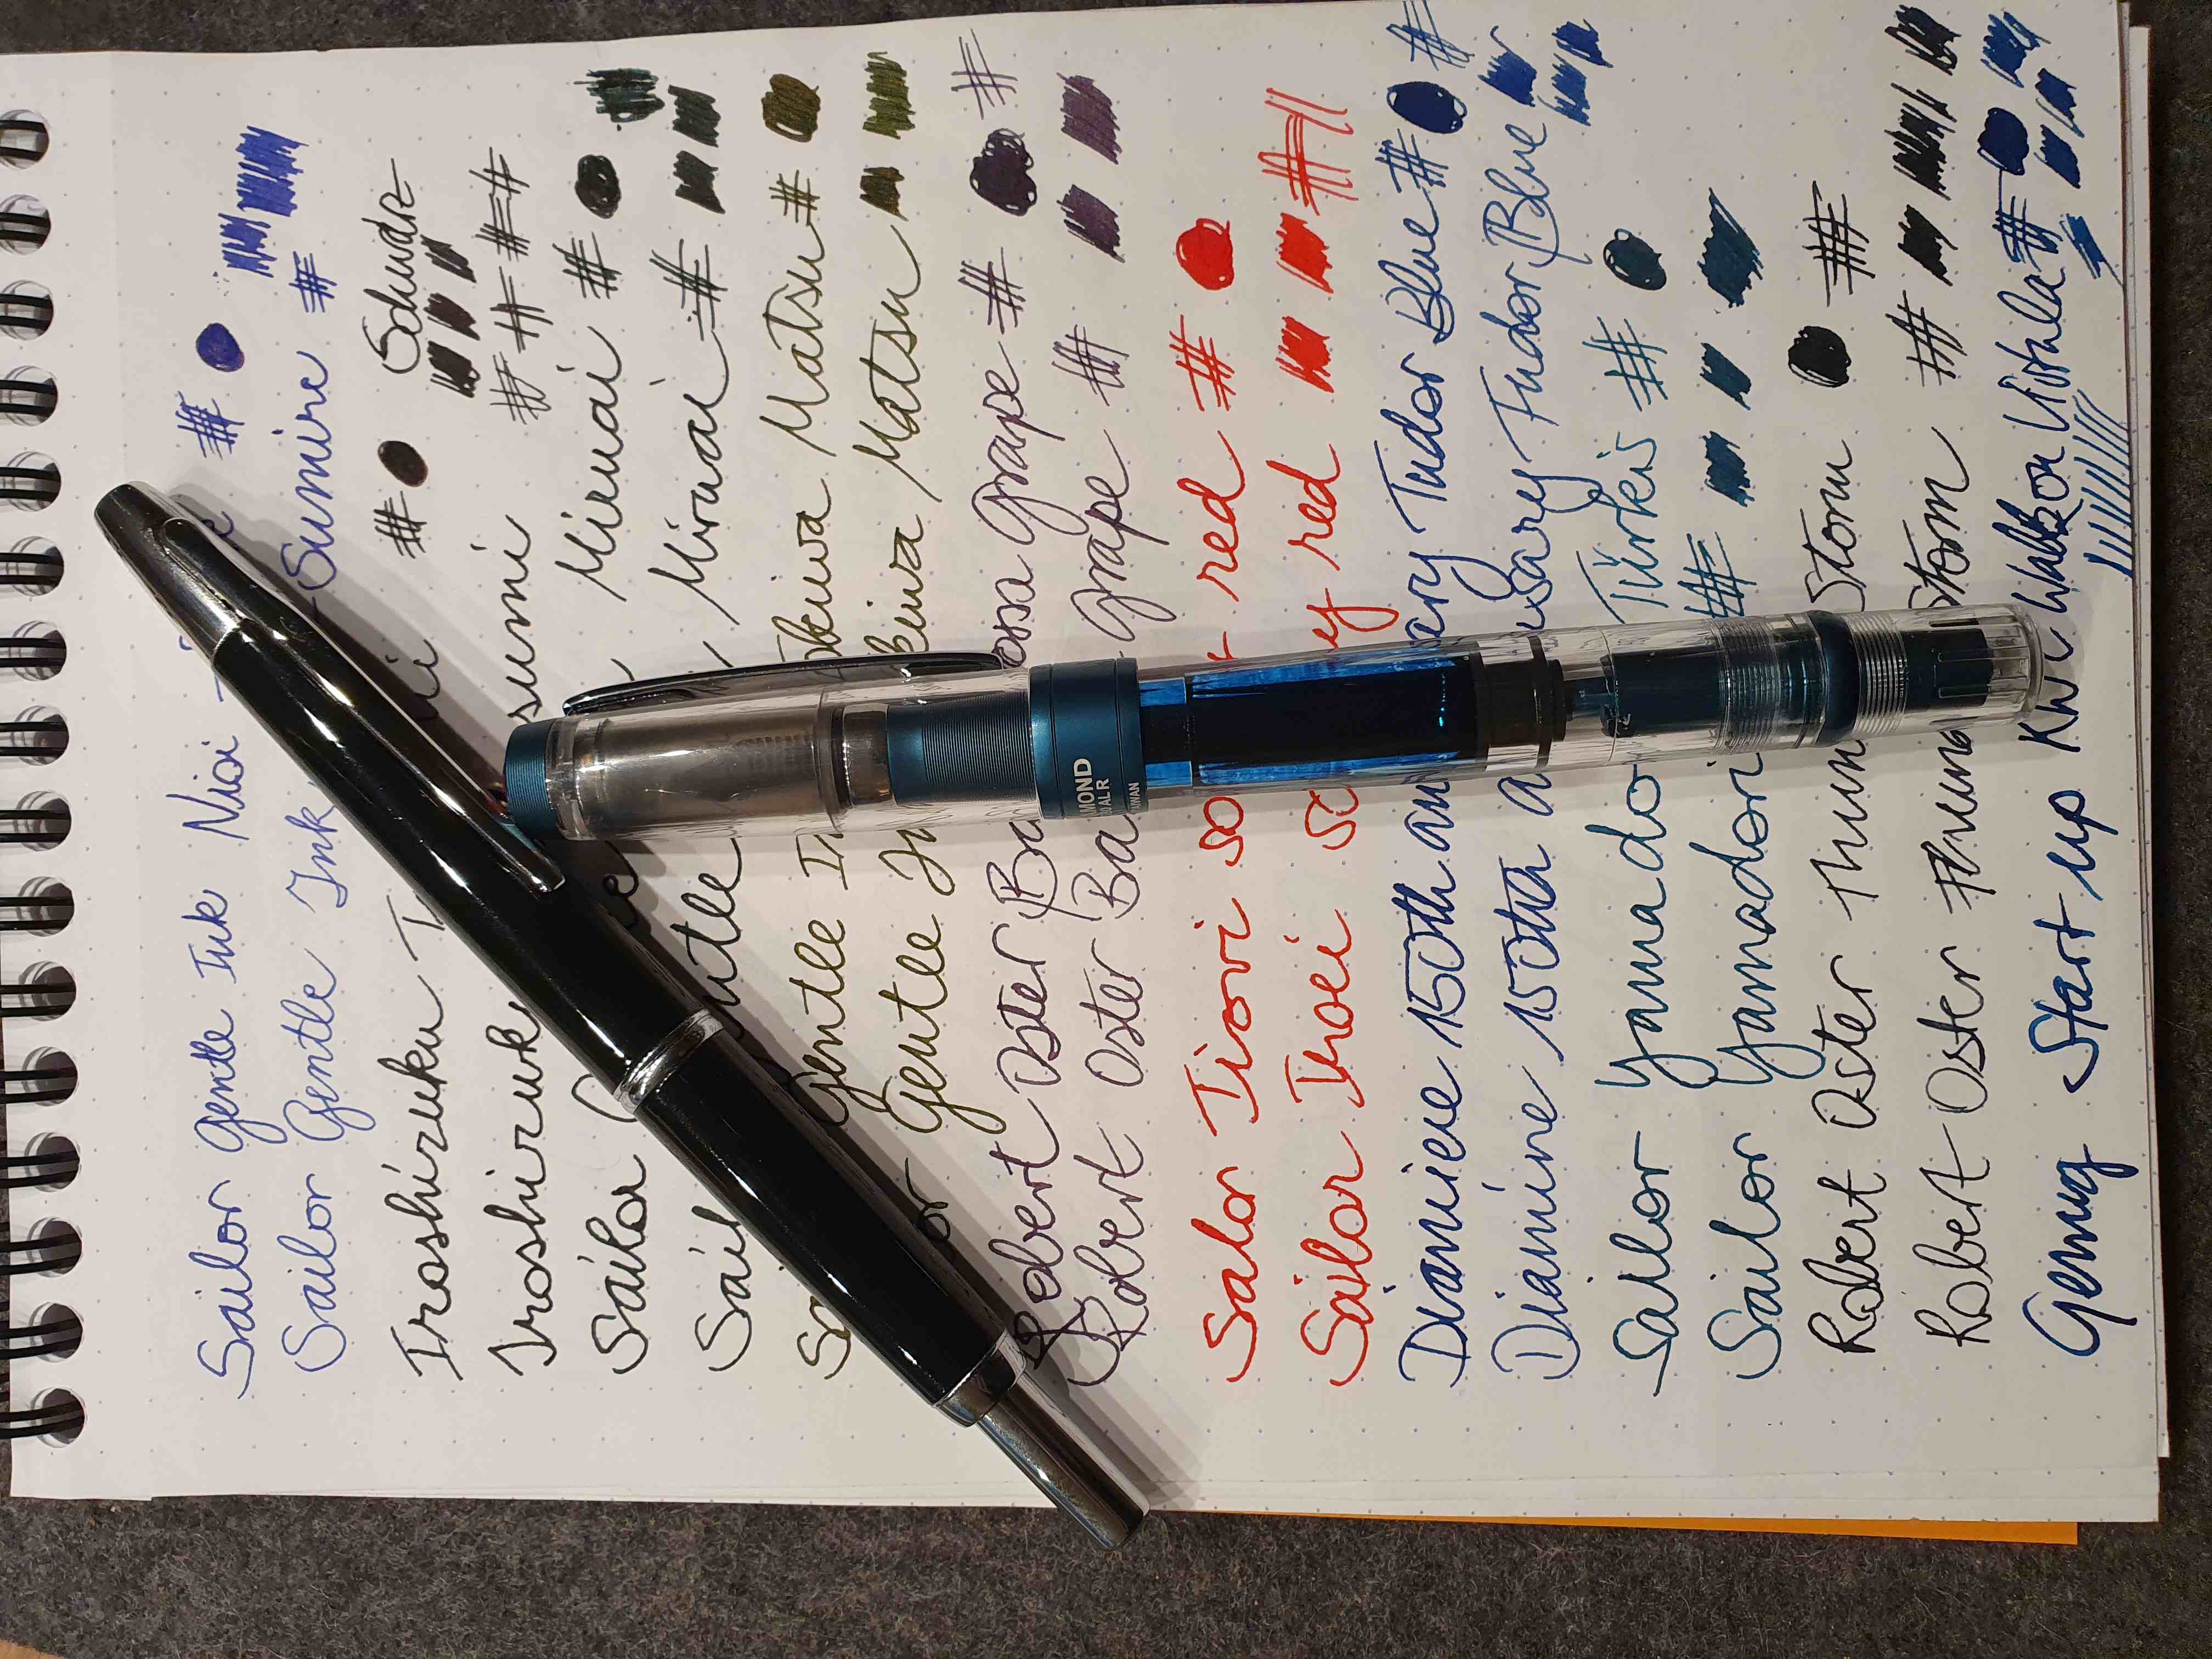 Sailor Gentle Ink Nioi - #
Sailor Gentle Ink - Sumire #
Iroshizuku # Schwarz
Iroshizuk sumi # # # #
Sailor Miruai #
Sail Mirai #
Gentle In kiwa Matsu #
or Gentle In kiwa Matsu
Robert Oster Ba ossa Grape # #
Robert Oster Ba Grape #
Sailor Iiovi so red #
Sailor Iroei so y red #
Diamiene 150th ann ary Tudor Blue # #
Diamine 150th a usary Tudor Blue
Sailor yamado Türkis #
Sailor yamadori #
Robert Oster Thun Storm #
Robert Oster Thund Storm #
Genug Start up #
MOND
AL R
TAIWAN